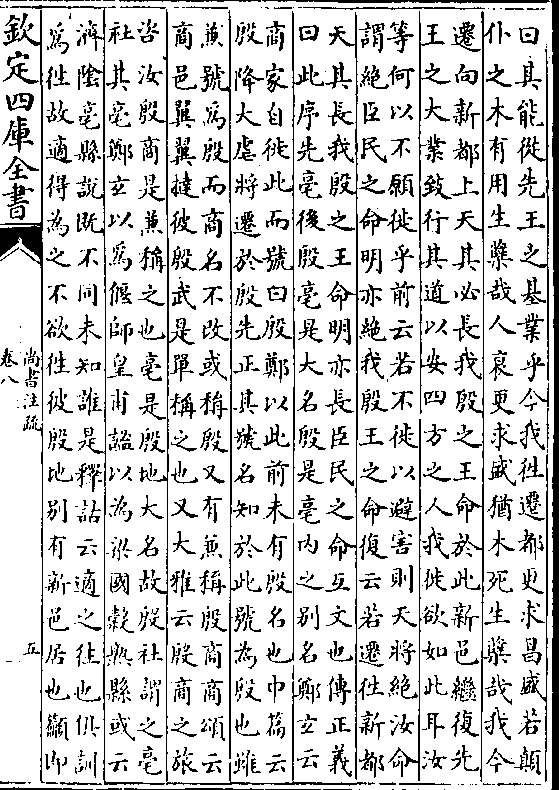 曰其能從先王之基業乎今我徃遷都更求昌盛若顛
仆之木有用生蘖哉人衰更求盛猶木死生蘖哉我今
遷向新都上天其必長我殷之王命於此新邑繼復先
王之大業致行其道以安四方之人我徙欲如此耳汝
等何以不願徙乎前云若不徙以避害則天將絶汝命
謂絶臣民之命明亦絶我殷王之命復云若遷徃新都
天其長我殷之王命明亦長臣民之命互文也傳正義
曰此序先亳後殷亳是大名殷是亳内之别名鄭玄云
商家自徙此而號曰殷鄭以此前未有殷名也中篇云
殷降大虐將遷於殷先正其號名知於此號為殷也雖
兼號為殷而商名不改或稱殷又有兼稱殷商商頌云
商邑翼翼撻彼殷武是單稱之也又大雅云殷商之旅
咨汝殷商是兼稱之也亳是殷地大名故殷社謂之亳
社其亳鄭玄以為偃師皇甫謐以為梁國榖熟縣或云
濟陰亳縣說既不同未知誰是釋詁云適之徃也俱訓
為徃故適得為之不欲徃彼殷地别有新邑居也籲即
欽定四庫全書
尚書注疏
卷八
五